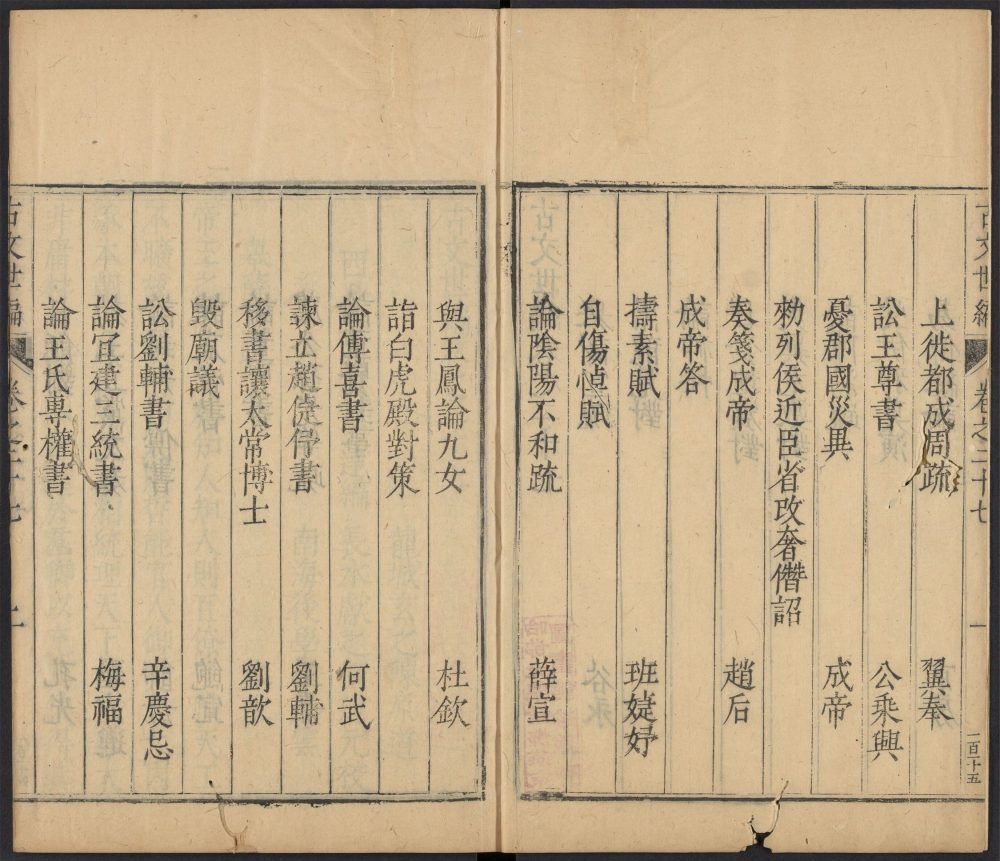 古文世編 卷之二十七 一 一百二十五
上徙都成周疏 翼奉
訟王尊書 公乘興
憂郡國災異 成帝
勑列侯近臣省改奢僭詔
奏箋成帝 趙后
成帝答
擣素賦 班婕妤
自傷悼賦
論陰陽不和疏 薛宣
與王鳳論九女 杜欽
詣白虎殿對策
論傅喜書 何武
諫立趙倢伃書 劉輔
移書讓太常博士 劉歆
毁廟議
訟劉輔書 辛慶忌
論冝建三統書 梅福
論王氏専權書
古文世編 卷之二十七